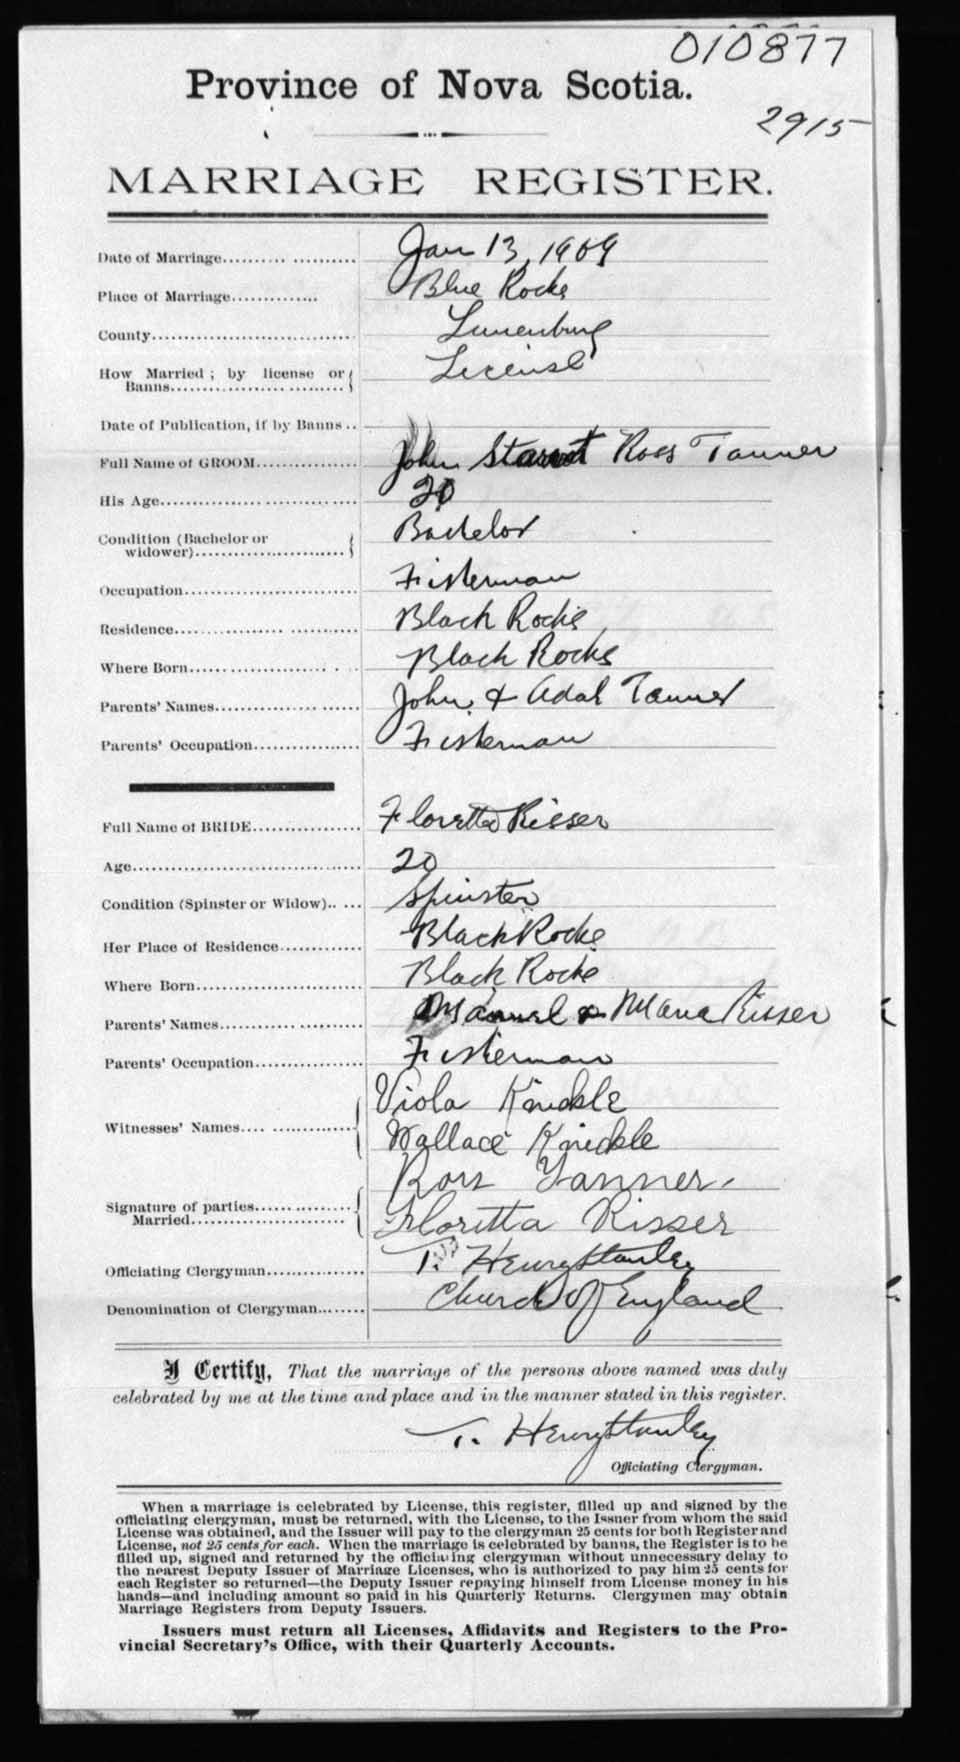 010877
Province of Nova Scotia.
2915
MARRIAGE REGISTER.
Date of Marriage.................... Jan 13, 1909
Place of Marriage.............. Blue Rocks
County.............................. Lunenburg
How Married ; by license or Banns.............................. License
Date of Publication, if by Banns ..
Full Name of GROOM................. John Ross Tanner
His Age.............................. 20
Condition (Bachelor or widower)........................ Bachelor
Occupation........................... Fisherman
Residence........................... Black Rocks
Where Born........................ Black Rocks
Parents' Names..................... John & Adah Tanner
Parents' Occupation................. Fisherman
Full Name of BRIDE................. Floretta Risser
Age.................................... 20
Condition (Spinster or Widow).. ... Spinster
Her Place of Residence............. Black Rocks
Where Born........................... Black Rocks
Parents' Names..................... & Maria Risser
Parents' Occupation................. Fisherman
Witnesses' Names.................. Viola Knickle
Wallace Knickle
Signature of parties Married........................ Ross Tanner.
Floretta Risser
Officiating Clergyman............... T. Henry Stanley
Denomination of Clergyman........ Church of England
I Certify, That the marriage of the persons above named was duly
celebrated by me at the time and place and in the manner stated in this register.
T. Henry Stanley
Officiating Clergyman.
When a marriage is celebrated by License, this register, filled up and signed by the
officiating clergyman, must be returned, with the License, to the Issuer from whom the said
License was obtained, and the Issuer will pay to the clergyman 25 cents for both Register and
License, not 25 cents for each. When the marriage is celebrated by banns, the Register is to be
filled up, signed and returned by the officiating clergyman without unnecessary delay to
the nearest Deputy Issuer of Marriage Licenses, who is authorized to pay him 25 cents for
each Register so returned—the Deputy Issuer repaying himself from License money in his
hands—and including amount so paid in his Quarterly Returns. Clergymen may obtain
Marriage Registers from Deputy Issuers.
Issuers must return all Licenses, Affidavits and Registers to the Pro-
vincial Secretary's Office, with their Quarterly Accounts.